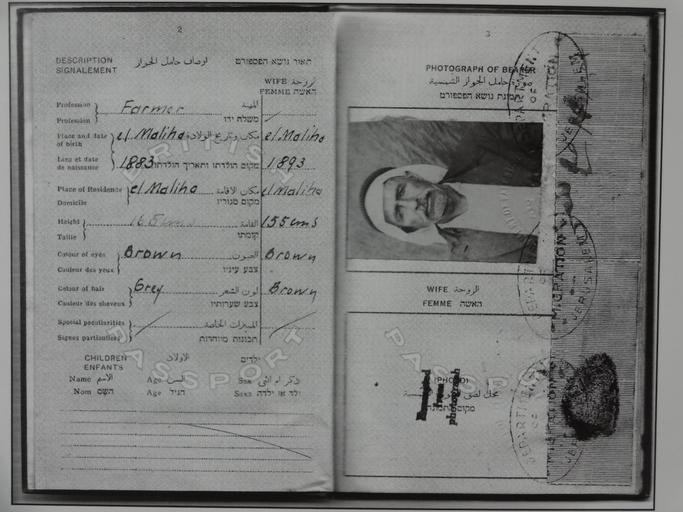 2
DESCRIPTION اوصاف حامل الجواز תאור נושא הפספורט
SIGNALEMENT
WIFE لزوجة
FEMME האשה
Profession Farmer المهنة
Profession משלח ידו
Place and date of birth el Maliha مكان وتاريخ الولادة el Maliha
Lieu et date de naissance 1883 מקום הולדתו ותאריך הולדתו 1893
Place of Residence el Maliha مكان الاقامة el Maliha
Domicile מקום מגוריו
Height 165 cms القامة 155 cms
Taille קומתו
Colour of eyes Brown العيون Brown
Couleur des yeux צבע עיניו
Colour of hair Grey لون الشعر Brown
Couleur des cheveux צבע שערותיו
Special peculiarities المميزات الخاصة
Signes particuliers תכונות מיוחדות
CHILDREN الاولاد ילדים
ENFANTS
Name الاسم Age السن Sex ذكر او انثى
Nom השם Age הגיל Sexe ילד או ילדה
BRITISH
PASSPORT
3
PHOTOGRAPH OF BEARER
صورة حامل الجواز الشمسية
תמונת נושא הפספורט
WIFE الزوجة
FEMME האשה
PASSPORT
(PHOTO)
Exempted
from
photograph
DEPARTMENT OF MIGRATION JERUSALEM
DEPARTMENT OF MIGRATION JERUSALEM
DEPARTMENT OF MIGRATION